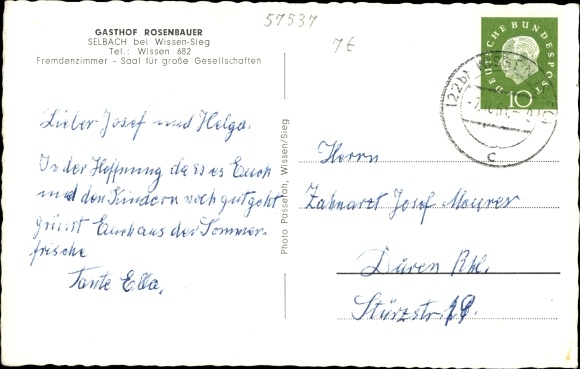 57537
7€
GASTHOF ROSENBAUER
SELBACH bei Wissen-Sieg
Tel.: Wissen 682
Fremdenzimmer - Saal für große Gesellschaften
Lieber Josef und Helga.
In der Hoffnung das es Euch
und den Kindern noch gut geht
grüsst Euch aus der Sommer-
frische
Tante Ella.
Photo Passerah, Wissen/Sieg
DEUTSCHE BUNDESPOST
10
(22b) WISSEN
c
Herrn
Zahnarzt Josef Meurer
Düren Rhl.
Stürzstr. 19.